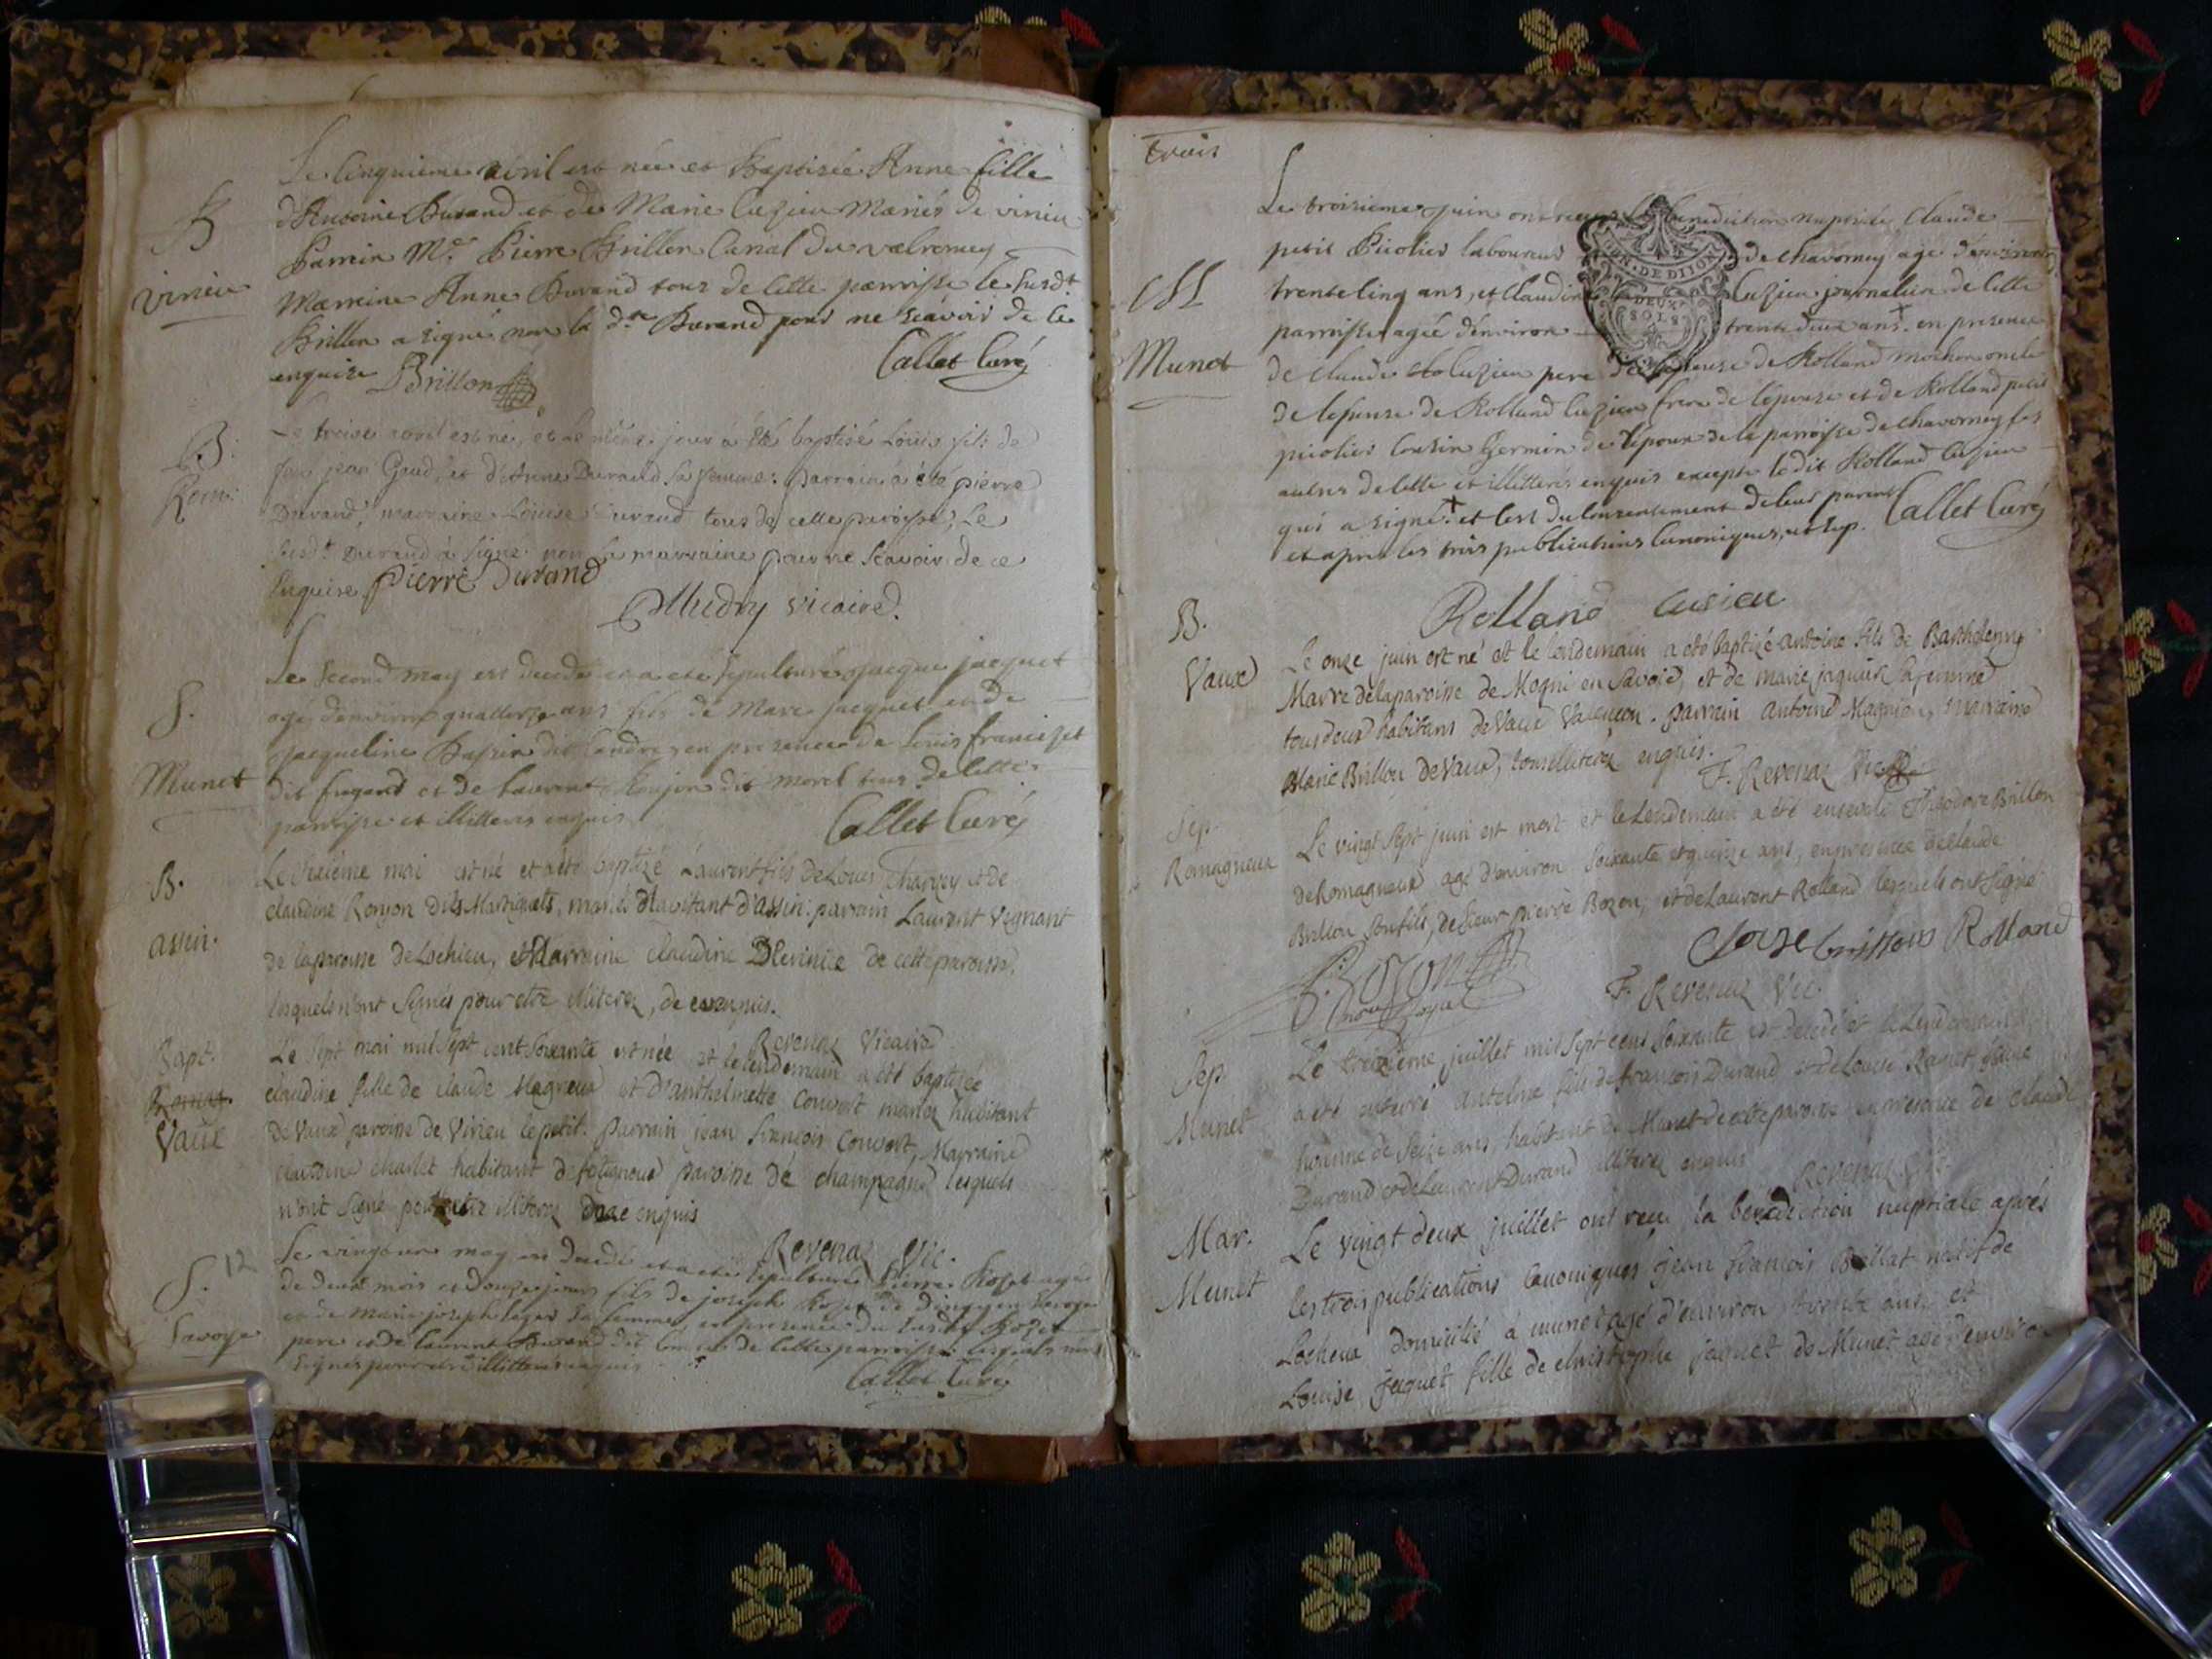 Le cinquieme avril est née et Baptisée Anne fille
d'Antoine Durand et de Marie Cuzieu Mariés de virieu
Parrein Me. Pierre Brillon Curial du valromey
B
virieu
Marreine Anne Durand tous de cette parroisse le susdt
Brillon a signé non la dte Durand pour ne scavoir de ce
enquise Brillon
Callet Curé
Le treize avril est né, et le même jour à été baptisé Louis fils de
B.
Rom:
feu jean Gaud, et d'Anne Durand sa femme: parrain a été pierre
Durand, marraine Louise Durand tous de cette paroisse, Le
susdt Durand à signé non la marraine pour ne scavoir de ce
enquise Pierre Durand
Audry vicaire.
Le second may est decedé et a eté sepulturé jacque jacquet
S.
agé d'environ quattorze ans fils de Marc jacquet et de
jacqueline en presence de Louis
Munet
dit et de Laurent dit Morel tous de cette
parroisse et illitteres enquis
Callet Curé
Le mai est né et a été baptizé Laurent fils de Louis Charvey et de
B.
assin.
claudine Ronjon dits Martiquets, mariés habitant d'assin. parrain Laurent vignant
de la paroisse de Lochieu, et Marraine claudine de cette paroisse,
lesquels n'ont signés pour etre illiterez, de ce enquis.
Revenaz Vicaire
Bapt.
Romag.
Vaux
Le sept mai mil sept cent soixante est née et le lendemain a été baptizée
claudine fille de claude Magneux et d'anthelmette Convert mariez habitant
de Vaux paroisse de Virieu le petit. Parrain jean francois Convert, Marraine
claudine charlet habitant de paroisse de champagne lesquels
n'ont signé pour etre illiterez de ce enquis
Revenaz Vic.
S. 12
Savoye
Le vingt may est decedé et a eté sepulturé Pierre Rozet agé
de deux mois et douze jours fils de joseph Rozet de en Savoye
et de Marie joseph leger sa femme, en presence du susdit Rozet
pere et de Laurent Durand dit de cette parroisse lesquels n'ont
signés pour etre illitteres enquis
Callet Curé
trois
Le troisieme juin ont receu la benediction nuptiale Claude
petit Picolier laboureur de chavorney agé d'environ
GEN. DE DIJON
DEUX
SOLS
M
Munet
trente cinq ans, et Claudine Cuzieu journaliere de cette
parroisse agée d'environ trente deux ans. en presence
de Claude Cuzieu pere de l'epouse de Rolland oncle
de l'epouse de Rolland Cuzieu frere de l'epouse et de Rolland petit
picolier Cousin Germain de l'epoux de la parroisse de chavorney les
autres de cette et illitterés enquis excepté ledit Rolland Cuzieu
qui a signé. et c'est du consentement de leur parents
et apres les trois publications Canoniques, ut sup. Callet Curé
Rolland Cusieu
B.
Vaux
Le onze juin est né et le lendemain a été baptizé antoine fils de Barthelemy
Marre de la paroisse de Mogni en Savoie, et de marie jaquier sa femme
tous deux habitans de Vaux Valencon. parrain antoine Magnien, marraine
Marie Brillon de Vaux, tous illiterez enquis.
F. Revenaz Vic.
Sep.
Romagneux
Le vingt sept juin est mort et le Lendemain a été enseveli Theodore Brillon
de Romagneux agé d'environ soixante et quinze ans, en presence de claude
Brillon son fils, de sieur pierre Bozon, et de Laurent Rolland lesquels ont signé
Rolland
Bozon
F. Revenaz Vic.
Sep
Munet
Le treizième juillet mil sept cens soixante est decedé et le Lendemain
a été enterré antelme fils de francois Durand et de Louise jeune
homme de seize ans, habitant de Munet de cette paroisse en presence de claude
Durand et de Laurent Durand illiterez enquis
Revenaz Vic.
Mar.
Munet
Le vingt deux juillet ont reçu la benediction nuptiale après
les trois publications Canoniques jean francois Ballat natif de
Locheux domicilié à munet agé d'environ trente ans, et
Louise jaquet fille de christophe jaquet de Munet agée d'environ